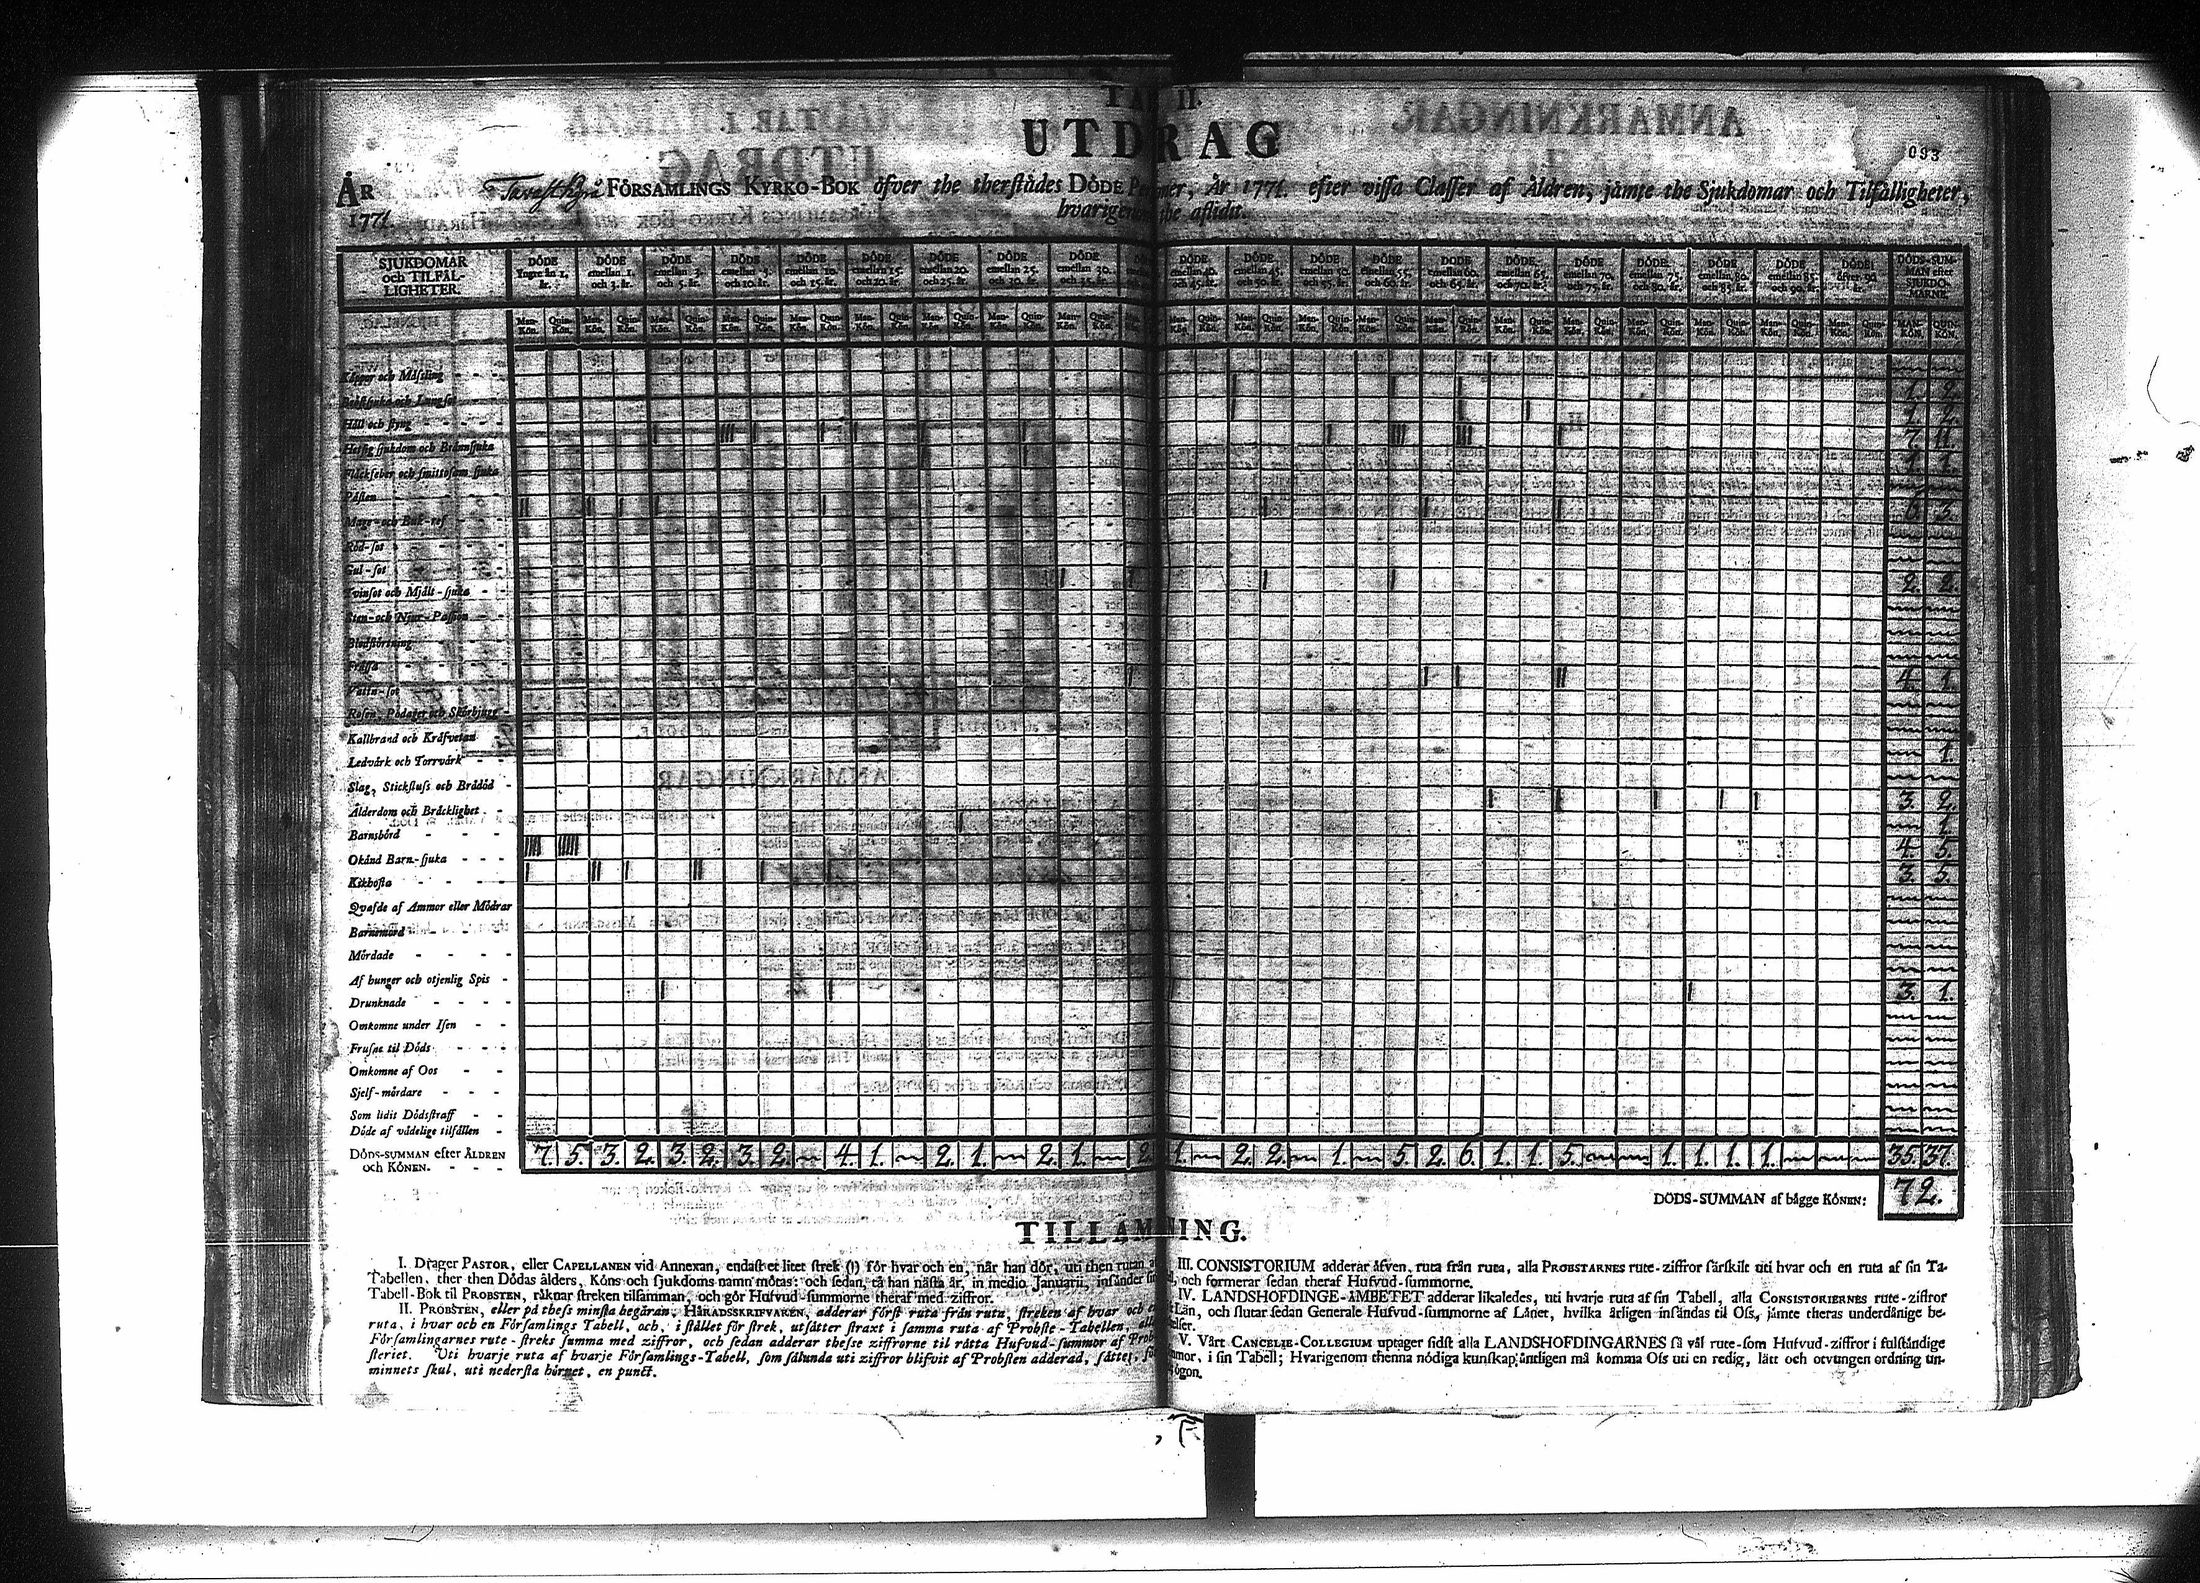 TAB II.
UTDRAG
093
ÅR
1771.
FÖRSAMLINGS KYRKO-BOK öfver the therstädes DÖDE Personer, År 1771. efter vissa Classer af Åldren, jämte the Sjukdomar och Tilfälligheter,
hvarigenom the aflidit.
SJUKDOMAR och TILFÄL-LIGHETER.
DÖDE Yngre än 1. år.
DÖDE emellan 1. och 3. år.
DÖDE emellan 3. och 5. år.
DÖDE emellan 5. och 10. år.
DÖDE emellan 10. och 15. år.
DÖDE emellan 15. och 20. år.
DÖDE emellan 20. och 25. år.
DÖDE emellan 25. och 30. år.
DÖDE emellan 30. och 35. år.
DÖDE emellan 40. och 45. år.
DÖDE emellan 45. och 50. år.
DÖDE emellan 50. och 55. år.
DÖDE emellan 55. och 60. år.
DÖDE emellan 60. och 65. år.
DÖDE emellan 65. och 70. år.
DÖDE emellan 70. och 75. år.
DÖDE emellan 75. och 80. år.
DÖDE emellan 80. och 85. år.
DÖDE emellan 85. och 90. år.
DÖDE efter 90 år.
DÖDS-SUMMAN efter SJUKDOMARNE.
Man-Kön. Quin-Kön.
MAN-KÖN. QUIN-KÖN.
Kopper och Mässling
Bröstsjuka och Lungsot 1. 2.
Håll och styng 1. 2.
Hetsig sjukdom och Brännsjuka 7. 11.
Fläckfeber och smittosam sjuka 1. 1.
Pästen
Mage- och Buk-ref 6. 3.
Röd-sot
Gul-sot
Tvinsot och Mjält-sjuka 2. 2.
Sten- och Njur-Passion
Blodstörtning
Frossa
Vattu-sot 4. 1.
Rosen, Podager och Skörbjugg
Kallbrand och Kräfvetan
Ledvärk och Torrvärk 1.
Slag, Stickfluss och Brådöd
Ålderdom och Bräcklighet 3. 2.
Barnsbörd 1.
Okänd Barn-sjuka 4. 5.
Kikhosta 3. 5.
Qvafde af Ammor eller Mödrar
Barnamord
Mördade
Af hunger och otjenlig Spis
Drunknade 3. 1.
Omkomne under Isen
Frusne til Döds
Omkomne af Oos
Sjelf-mördare
Som lidit Dödsstraff
Döde af vådelige tilfällen
DÖDS-SUMMAN efter ÅLDREN och KÖNEN. 7. 5. 3. 2. 3. 2. 3. 2. 4. 1. 2. 1. 2. 1. 2. 1. 2. 2. 1. 5. 2. 6. 1. 1. 5. 1. 1. 1. 1. 35. 37.
DÖDS-SUMMAN af bägge KÖNEN: 72.
TILLÄMNING.
I. Drager PASTOR, eller CAPELLANEN vid Annexan, endast et litet strek (1) för hvar och en, när han dör, uti then rutan af
Tabellen, ther then Dödas ålders, Köns och sjukdoms namn mötas: och sedan, tå han nästa år, in medio Januarii, insänder sin
Tabell-Bok til PROBSTEN, räknar streken tilsamman, och gör Hufvud-summorne theraf med ziffror.
II. PROBSTEN, eller på thess minsta begäran, HÄRADSSKRIFVAREN, adderar först ruta från ruta, streken af hvar och en
ruta, i hvar och en Församlings Tabell, och, i stället för strek, utsätter straxt i samma ruta af Probste-Tabellen, alla
Församlingarnes rute-streks summa med ziffror, och sedan adderar thesse ziffrorne til rätta Hufvud-summor af Prob-
steriet. Uti hvarje ruta af hvarje Församlings-Tabell, som sålunda uti ziffror blifvit af Probsten adderad, sättes, för
minnets skul, uti nedersta hörnet, en punct.
III. CONSISTORIUM adderar äfven, ruta från ruta, alla PROBSTARNES rute-ziffror särskilt uti hvar och en ruta af sin Ta-
bell, och formerar sedan theraf Hufvud-summorne.
IV. LANDSHÖFDINGE-ÄMBETET adderar likaledes, uti hvarje ruta af sin Tabell, alla CONSISTORIERNES rute-ziffror
Län, och slutar sedan Generale Hufvud-summorne af Länet, hvilka årligen insändas til Oss, jämte theras underdånige be-
rättelser.
V. Vårt CANCELIE-COLLEGIUM uptager sidst alla LANDSHÖFDINGARNES så väl rute-som Hufvud-ziffror i fulständige
summor, i sin Tabell; Hvarigenom thenna nödiga kunskap ändtligen må komma Oss uti en redig, lätt och otvungen ordning un-
der ögon.